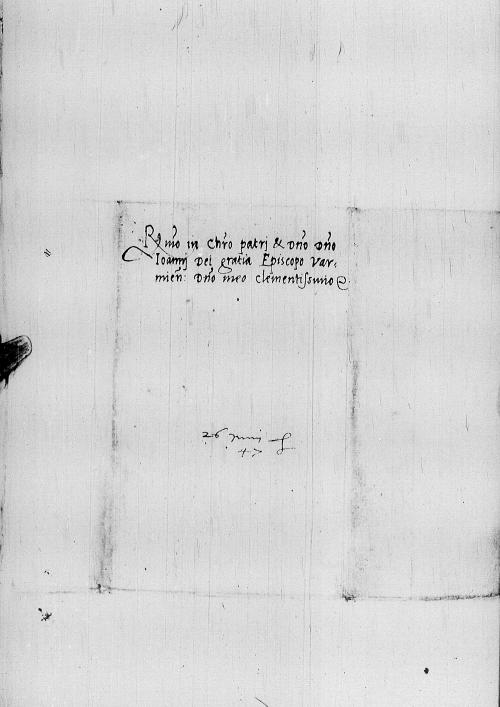 R̃mo in Chr̃o patrj & Dño Dño
Ioannj Dej gratia Episcopo Var-
mieñ: Dño meo clementissimo
26 Junij
47